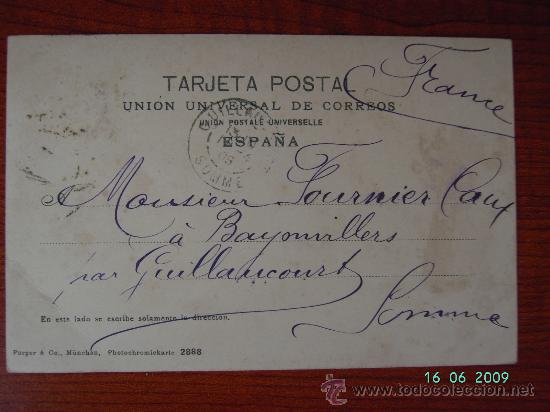 TARJETA POSTAL
UNIÓN UNIVERSAL DE CORREOS
UNION POSTALE UNIVERSELLE
ESPAÑA
France
GUILLAUC
SOMME
A Monsieur Fournier Caux
à Bayonvillers
par Guillaucourt
Somme
En este lado se escribe solamente la dirección.
Purger & Co., München, Photochromiekarte 2888
16 06 2009
www.todocoleccion.net